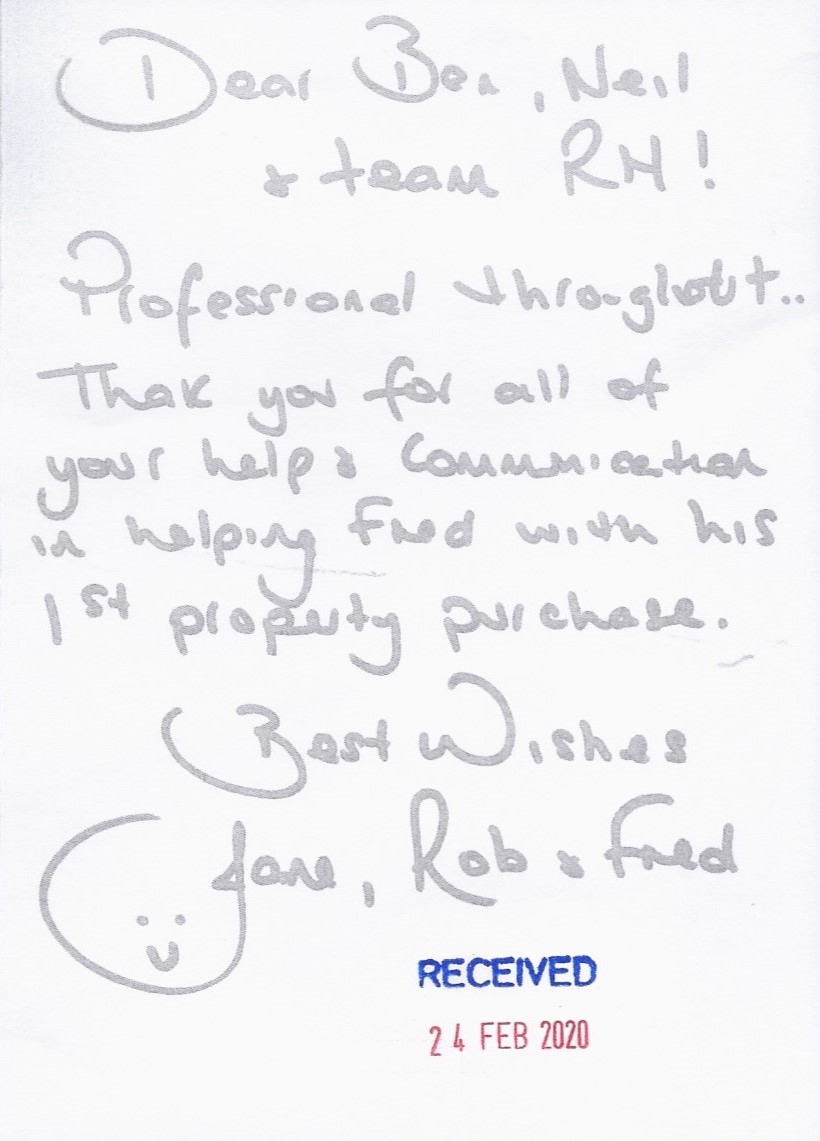 Dear Ben, Neil
& team RH!
Professional throughout..
Thank you for all of
your help & communication
in helping Fred with his
1st property purchase.
Best Wishes
Jane, Rob & Fred
RECEIVED
24 FEB 2020